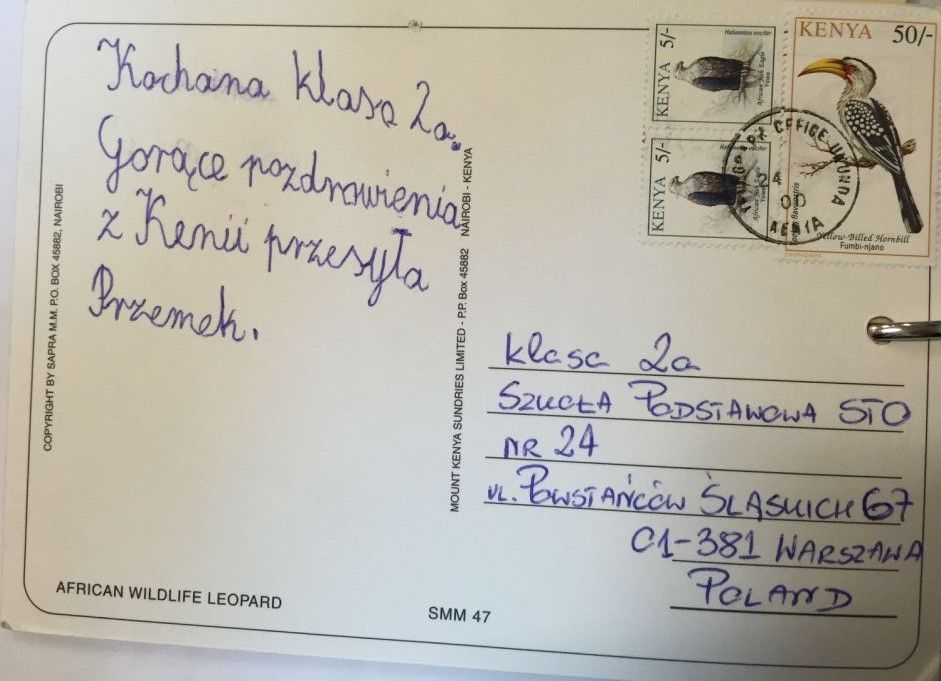 Kochana klasa 2a.
Gorące pozdrowienia
z Kenii przesyła
Przemek.
COPYRIGHT BY SAPRA M.M. P.O. BOX 45882, NAIROBI
MOUNT KENYA SUNDRIES LIMITED - P.P. Box 45882 NAIROBI - KENYA
KENYA 5/-
Haliaeetus vocifer
African Fish Eagle
KENYA 5/-
KENYA 50/-
Yellow-Billed Hornbill
Fumbi-njano
POST OFFICE UKUNDA
KENYA
klasa 2a
SZKOŁA PODSTAWOWA STO
NR 24
UL. POWSTAŃCÓW ŚLĄSKICH 67
01-381 WARSZAWA
POLAND
AFRICAN WILDLIFE LEOPARD
SMM 47